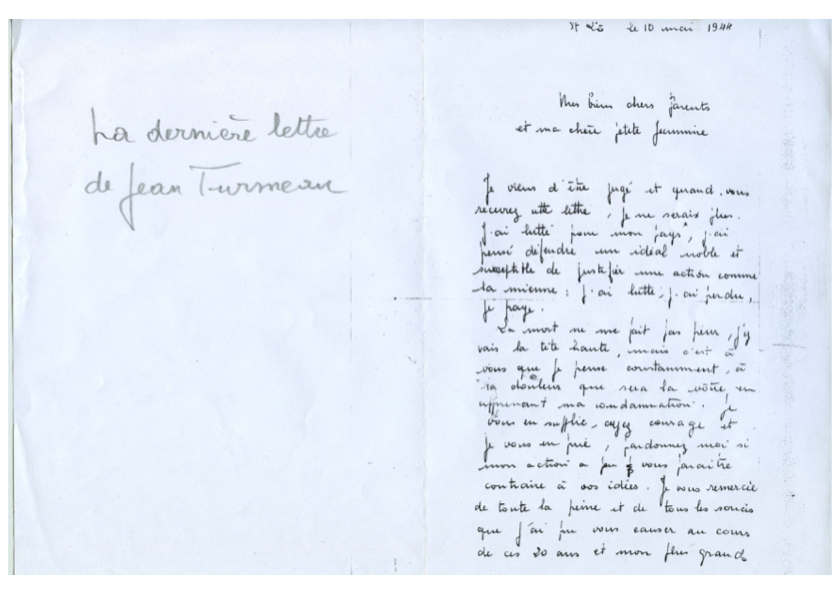 La dernière lettre
de Jean Turmeau
St Lô le 10 mai 1944
Mes biens chers Parents
et ma chère petite Jeannine
Je viens d'être jugé et quand vous
recevrez cette lettre, je ne serais plus.
J'ai lutté pour mon pays, j'ai
pensé défendre un idéal noble et
susceptible de justifier une action comme
la mienne ; j'ai lutté, j'ai perdu,
je paye.
La mort ne me fait pas peur, j'y
vais la tête haute, mais c'est à
vous que je pense constamment, à
la douleur que sera la vôtre en
apprenant ma condamnation. Je
vous en supplie, ayez courage et
je vous en prie, pardonnez moi si
mon action a pu vous paraitre
contraire à vos idées. Je vous remercie
de toute la peine et de tous les soucis
que j'ai pu vous causer au cours
de ces 20 ans et mon plus grand